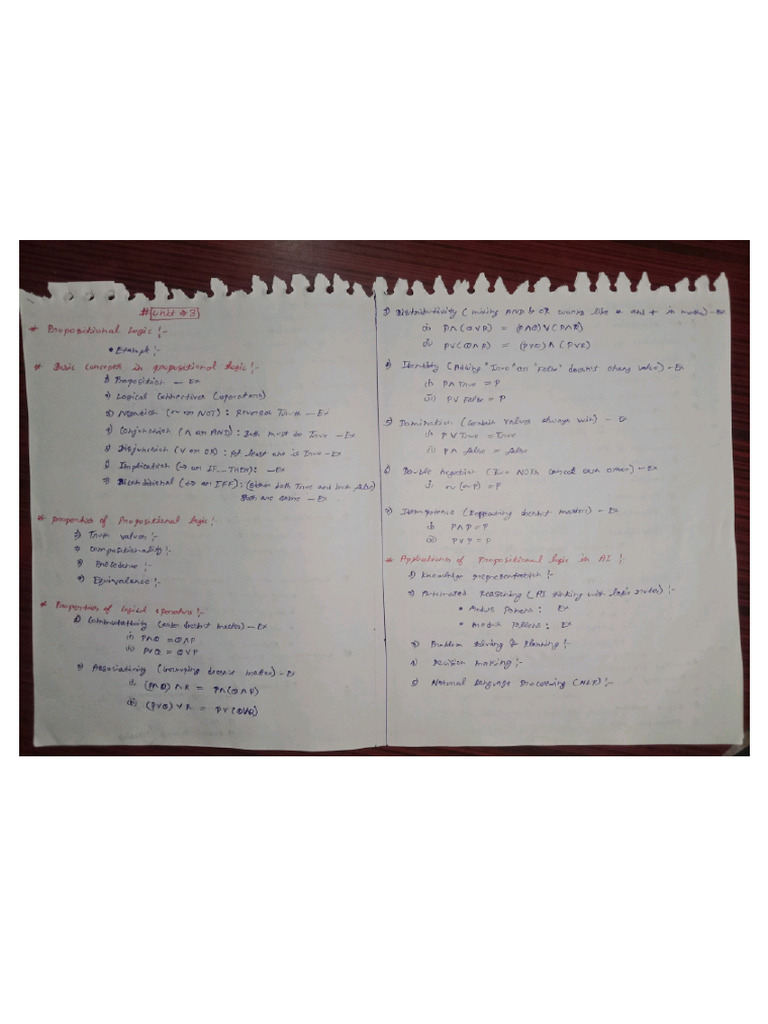 # Unit → 3
* Propositional Logic :-
• Example :-
* Basic concepts in propositional logic :-
1) Proposition — Ex
2) Logical Connectives (operators)
3) Negation (~ or NOT) : Reverses Truth — Ex
4) Conjunction (∧ or AND) : Both must be True — Ex
5) Disjunction (∨ or OR) : At least one is True — Ex
6) Implication (→ or IF...THEN) : — Ex
7) Biconditional (↔ or IFF) : (both True and both false)
Both are same — Ex
* properties of Propositional logic :-
Truth values :-
compositionality :-
Precedence :-
Equivalence :-
* Properties of logical operators :-
1) Commutativity (order doesn't matter) — Ex
i) P∧Q = Q∧P
ii) P∨Q = Q∨P
2) Associativity (Grouping doesn't matter) — Ex
i) (P∧Q) ∧ R = P∧(Q∧R)
ii) (P∨Q) ∨ R = P∨(Q∨R)
3) Distributivity (mixing AND & OR works like * and + in maths) — Ex
i) P∧(Q∨R) = (P∧Q)∨(P∧R)
ii) P∨(Q∧R) = (P∨Q)∧(P∨R)
4) Identity (Adding "True" or "False" doesn't change value) — Ex
i) P∧True = P
ii) P∨False = P
5) Domination (Certain values always win) — Ex
i) P∨True = True
ii) P∧false = false
6) Double Negation (Two NOTs cancel each other) — Ex
i) ~(~P) = P
7) Idempotence (Repeating doesn't matter) — Ex
i) P∧P = P
ii) P∨P = P
* Applications of Propositional logic in AI :-
1) Knowledge representation :-
2) Automated Reasoning (AI thinking with logic rules) :-
• Modus Ponens : Ex
• Modus Tollens : Ex
3) Problem Solving & Planning :-
4) Decision making :-
5) Natural Language Processing (NLP) :-